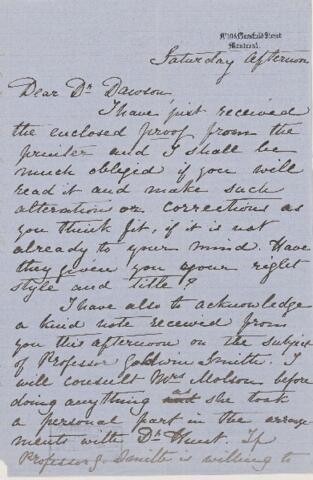 Montreal.
Saturday Afternoon
Dear Dr Dawson
I have just received
the enclosed proof from the
printer and I shall be
much obliged if you will
read it and make such
alteration or corrections as
you think fit, if it is not
already to your mind. Have
they given you your right
style and title?
I have also to acknowledge
a kind note received from
you this afternoon on the subject
of Professor Goldwin Smith. I
will consult Mrs Molson before
doing anything as she took
a personal part in the arrange
ments with Dr Hunt. If
Professor G. Smith is willing to